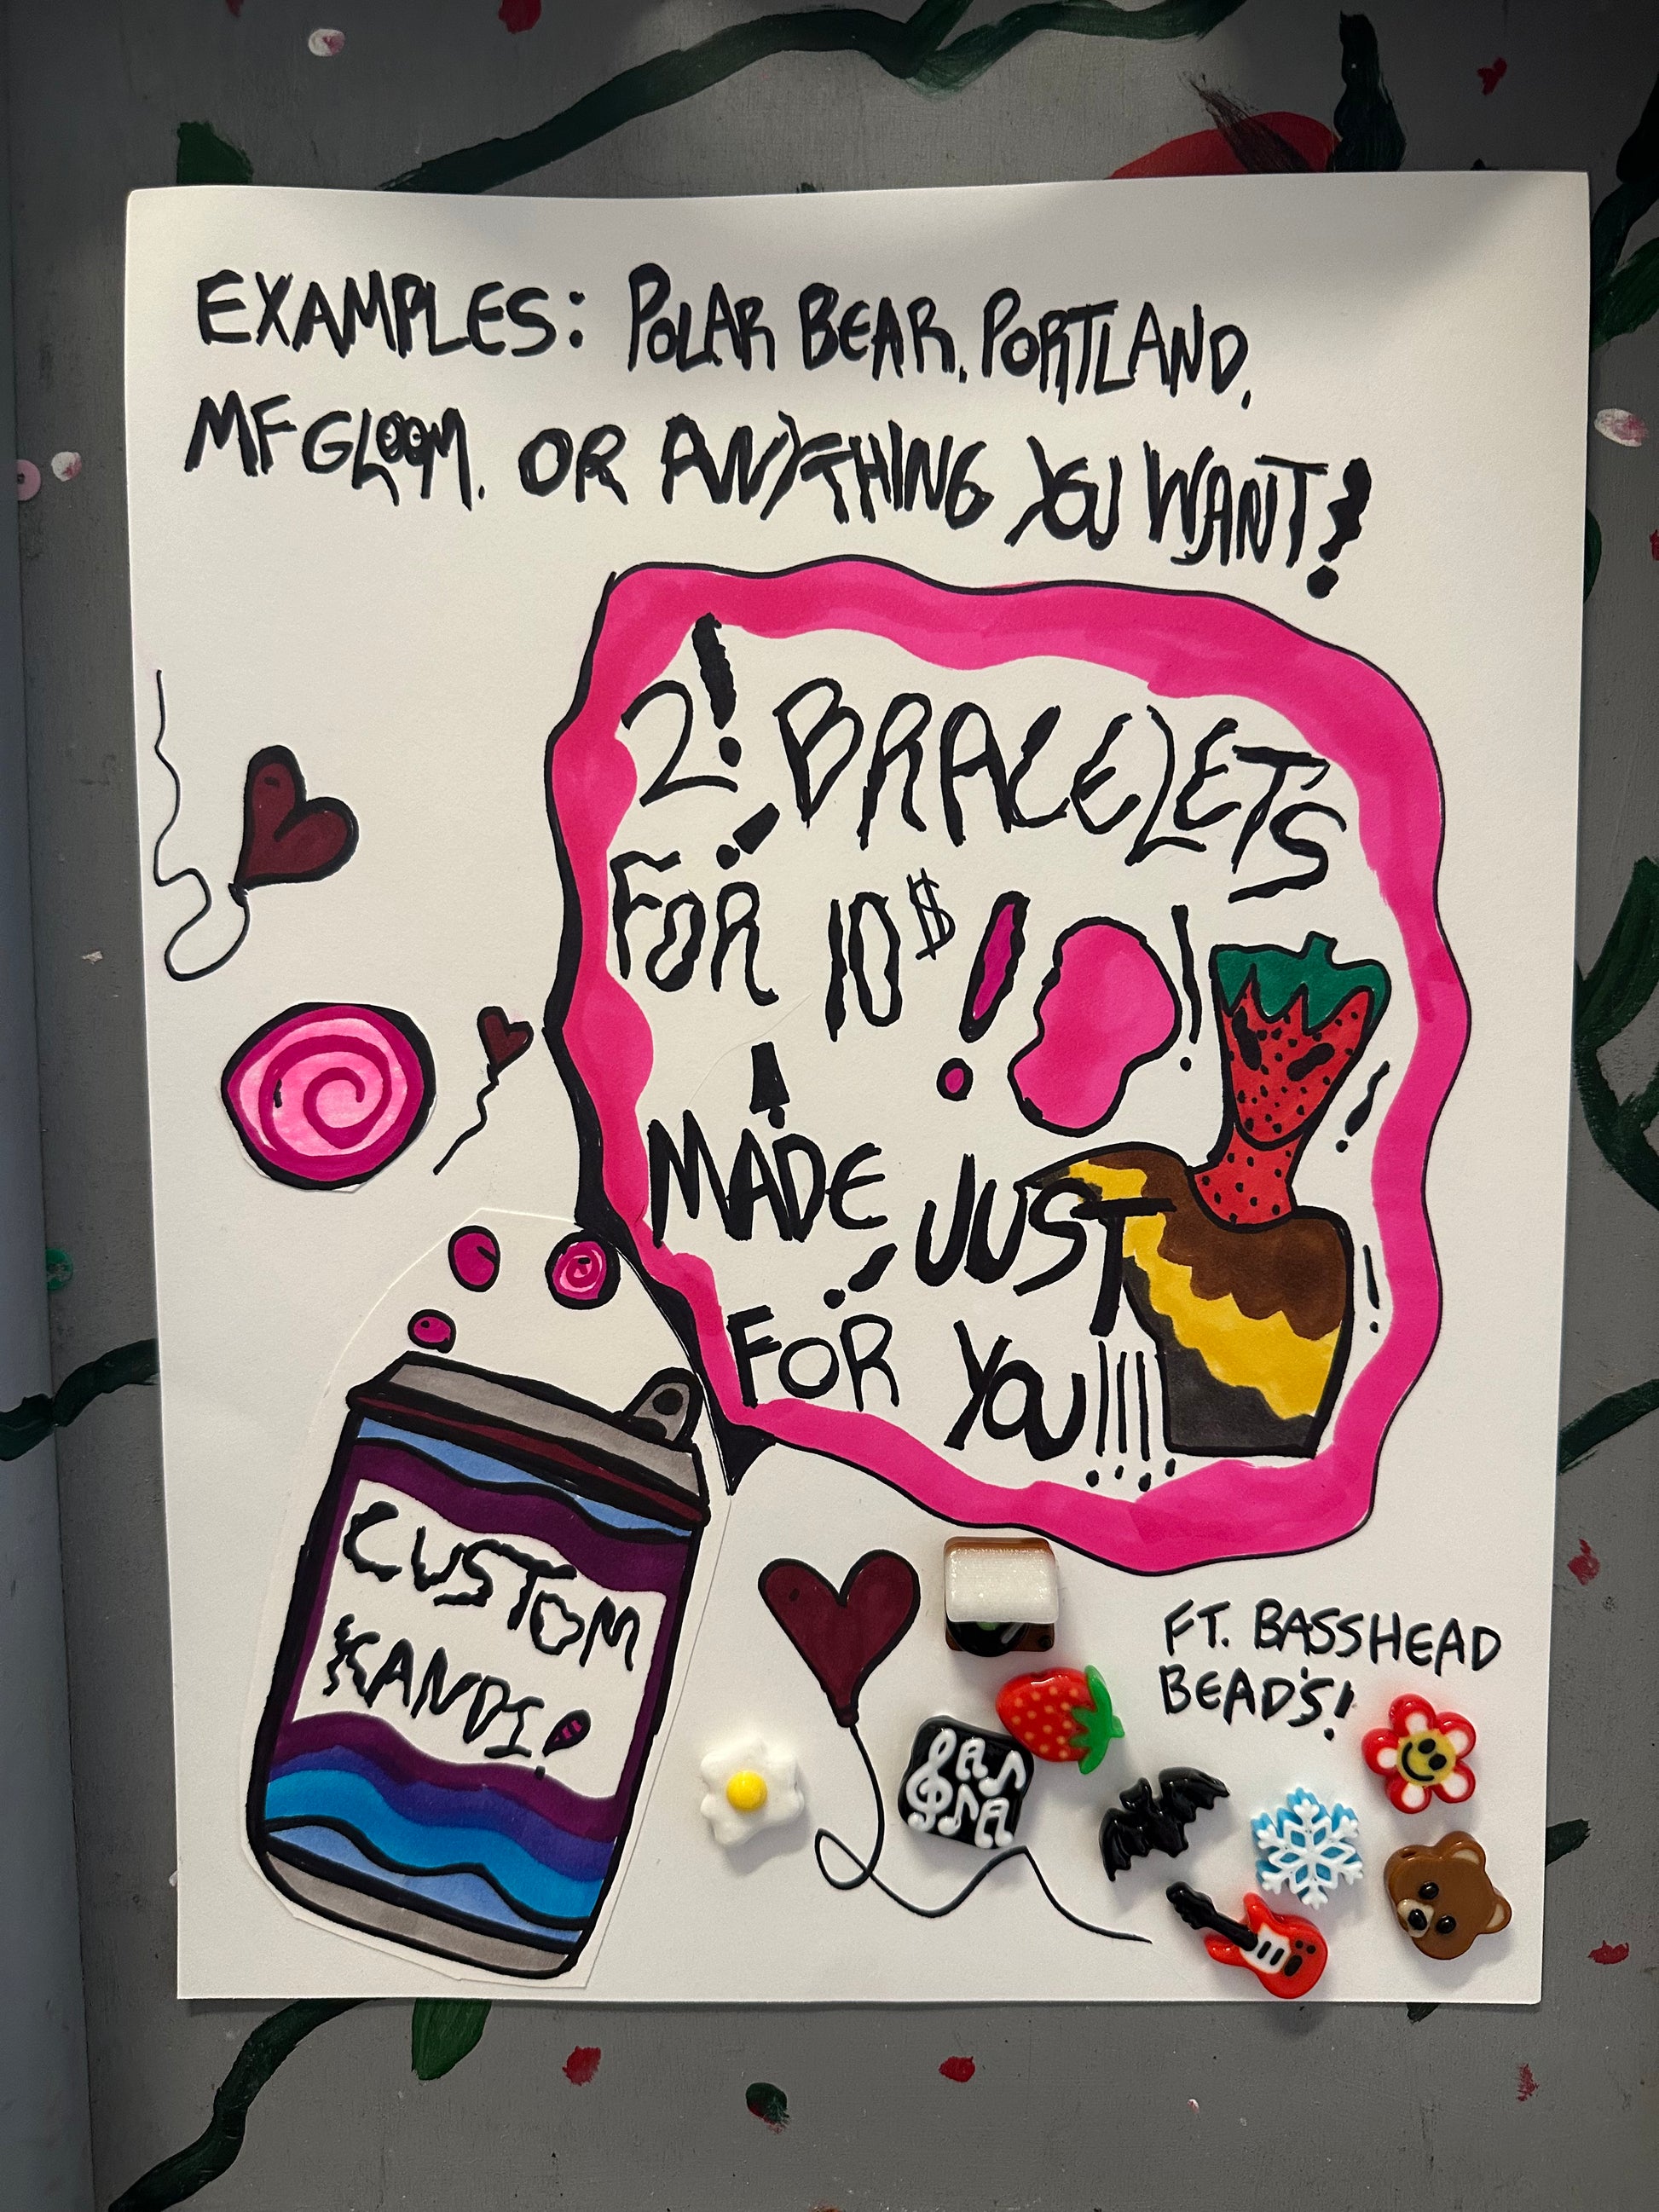 EXAMPLES: POLAR BEAR, PORTLAND,
MF GLOOM, OR ANYTHING YOU WANT!
2! BRACELET'S
FOR 10$!!
MADE JUST
FOR YOU!!!!
CUSTOM
KANDI!
FT. BASSHEAD
BEAD'S!